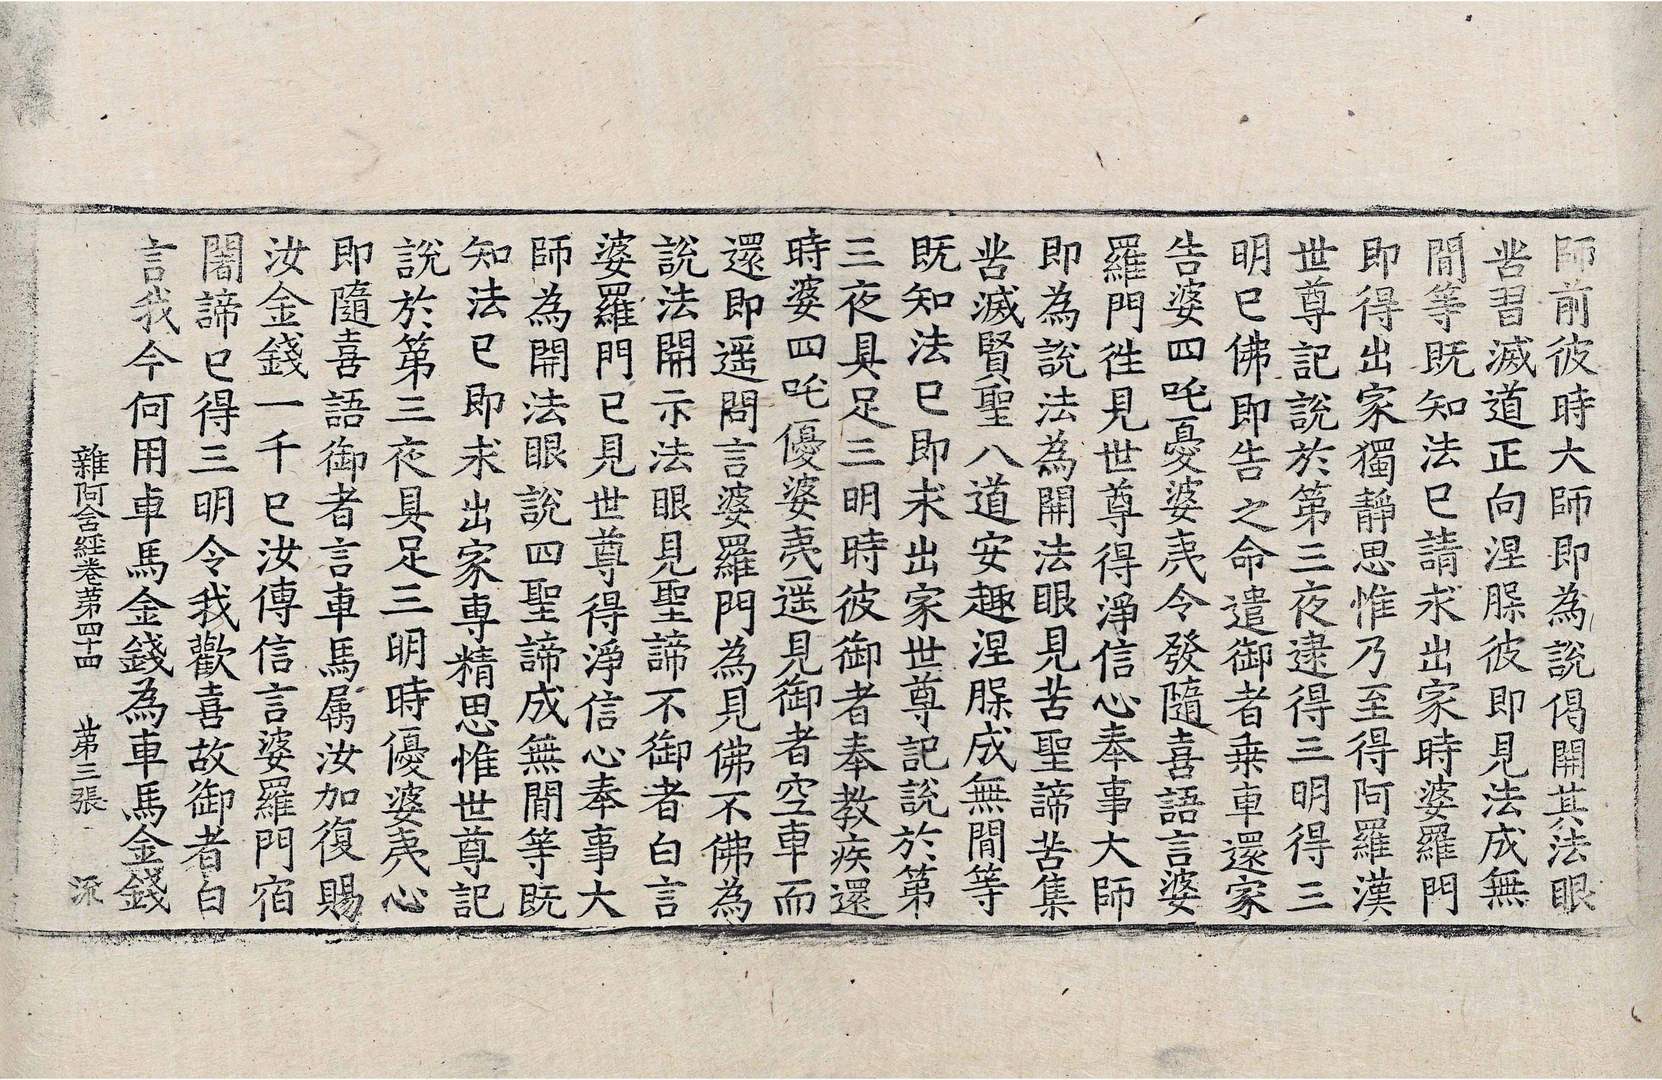 師前彼時大師即為說偈開其法眼
苦習滅道正向涅槃彼即見法成無
閒等既知法已請求出家時婆羅門
即得出家獨靜思惟乃至得阿羅漢
世尊記說於第三夜逮得三明得三
明已佛即告之命遣御者乗車還家
告婆四吒憂婆夷令發隨喜語言婆
羅門往見世尊得淨信心奉事大師
即為說法為開法眼見苦聖諦苦集
苦滅賢聖八道安趣涅槃成無閒等
既知法已即求出家世尊記說於第
三夜具足三明時彼御者奉教疾還
時婆四吒優婆夷遥見御者空車而
還即遥問言婆羅門為見佛不佛為
說法開示法眼見聖諦不御者白言
婆羅門已見世尊得淨信心奉事大
師為開法眼說四聖諦成無閒等既
知法已即求出家專精思惟世尊記
說於第三夜具足三明時優婆夷心
即隨喜語御者言車馬属汝加復賜
汝金錢一千已汝傳信言婆羅門宿
闍諦已得三明令我歡喜故御者白
言我今何用車馬金錢為車馬金錢
雜阿含經卷第四十四 第三張 流